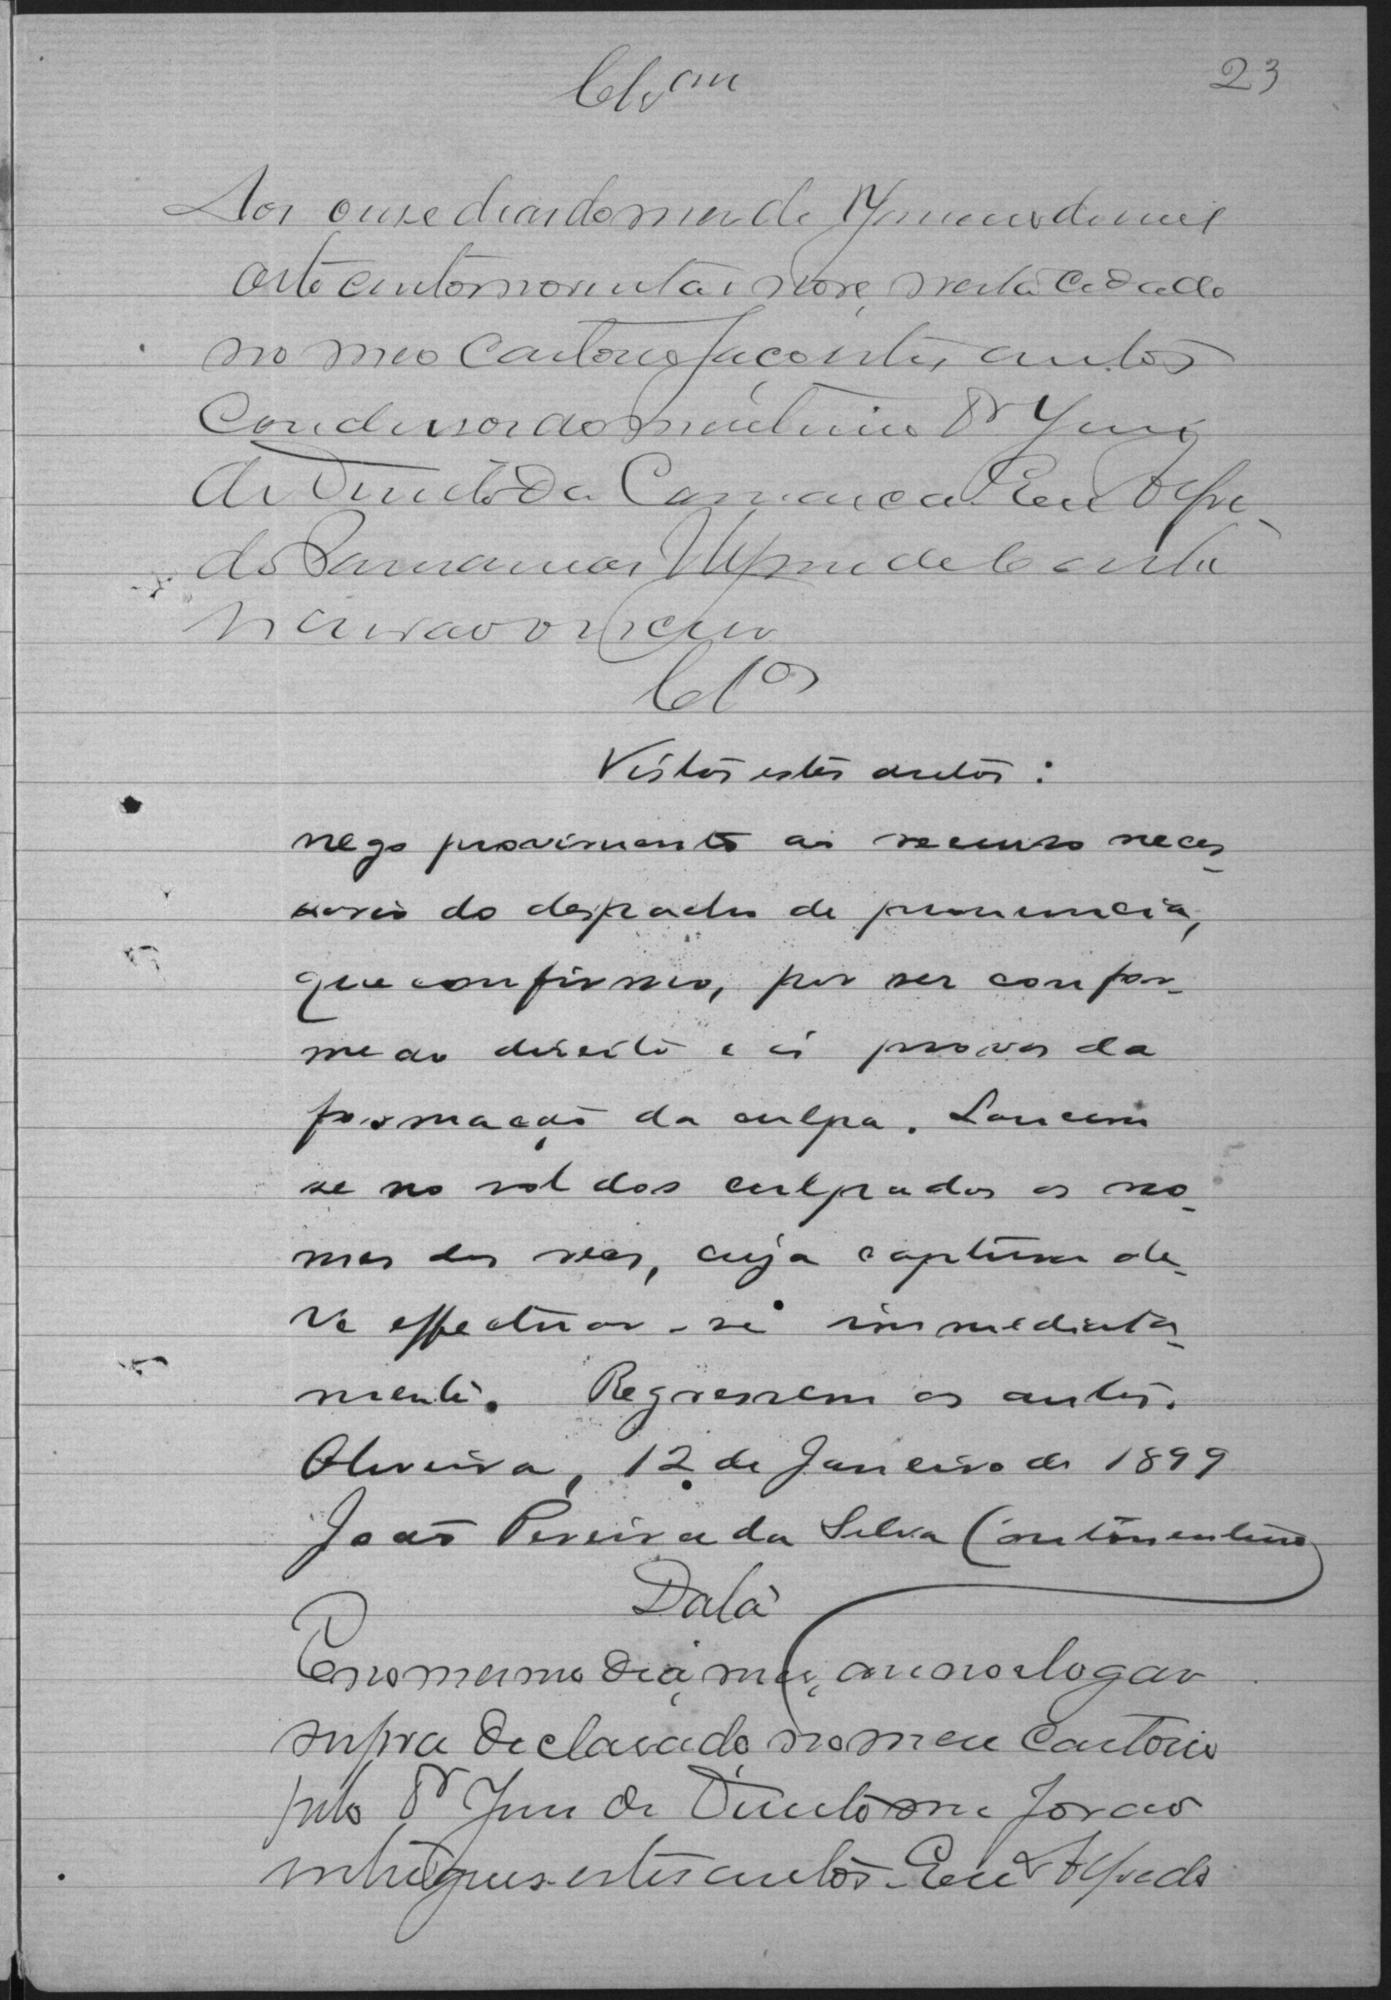 Clsam
23
Aos onze dias do mes de Janeiro de mil
oitocentos noventa e nove nesta cidade
no meo Cartorio faço estes autos
Conclusos ao meritissimo Dr Juiz
de Direito da Comarca. Eu Alfre-
do
escrivão o escrevi
Clos
Vistos estes autos:
nego provimento ao recurso neces-
sario do despacho de pronuncia,
que confirmo, por ser confor-
me ao direito e ás provas da
formação da culpa. Lancem
se no rol dos culpados os no-
mes dos reos, cuja captura de-
ve effectuar-se immediata-
mente. Regressem os autos.
Oliveira, 12 de Janeiro de 1899
João Pereira da Silva Continentino
Data
E no mesmo dia, mes, anno e logar
supra declarado no meu Cartorio
pelo Dr Juiz de Direito me forão
entregues estes autos. Eu Alfredo